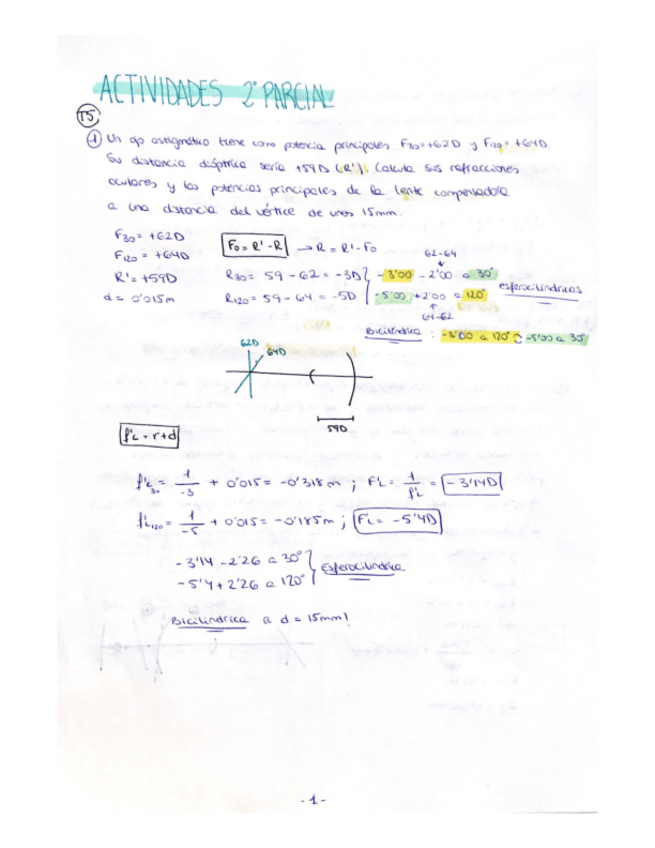 ACTIVIDADES 2º PARCIAL
T5
1 Un ojo astigmático tiene como potencia principales F30=+62D y F120=+64D.
Su distancia dióptrica sería +59D (R'). Calcula sus refracciones
oculares y las potencias principales de la lente compensadora
a una distancia del vértice de unos 15mm.
F30 = +62D
F120 = +64D
R' = +59D
d = 0'015m
F0 = R' - R → R = R' - F0
62-64
R30 = 59 - 62 = -3D } -3'00 - 2'00 a 30°
R120 = 59 - 64 = -5D } -5'00 + 2'00 a 120°
esferocilíndricas
64-62
Bicilíndrica : -3'00 a 120° -5'00 a 30°
62D
64D
59D
f'L = r + d
f'L30 = 1/-3 + 0'015 = -0'318m ; F'L = 1/f'L = -3'14D
f'L120 = 1/-5 + 0'015 = -0'185m ; F'L = -5'4D
-3'14 - 2'26 a 30°
-5'4 + 2'26 a 120° } Esferocilíndrica
Bicilíndrica a d = 15mm!
- 1 -